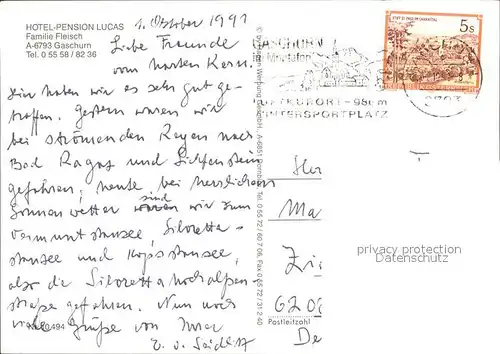 HOTEL-PENSION LUCAS
Familie Fleisch
A-6793 Gaschurn
Tel. 0 55 58 / 82 36
1. Oktober 1991
Liebe Freunde
vom harten Kern.
Hier haben wir es sehr gut ge-
troffen. Gestern waren wir
bei strömenden Regen nach
Bad Ragaz und Lichtenstein
gefahren, heute bei herrlichem
Sonnen wetter sind wir zum
Vermuntstausee, Silvretta-
stausee und Kopsstausee,
also die Silvretta Hochalpen-
straße gefahren. Nun noch
viele Grüße von
E. v. Seidlitz
494
GASCHURN
im Montafon
LUFTKURORT - 980m
WINTERSPORTPLATZ
5 S
Postleitzahl
6202
privacy protection
Datenschutz